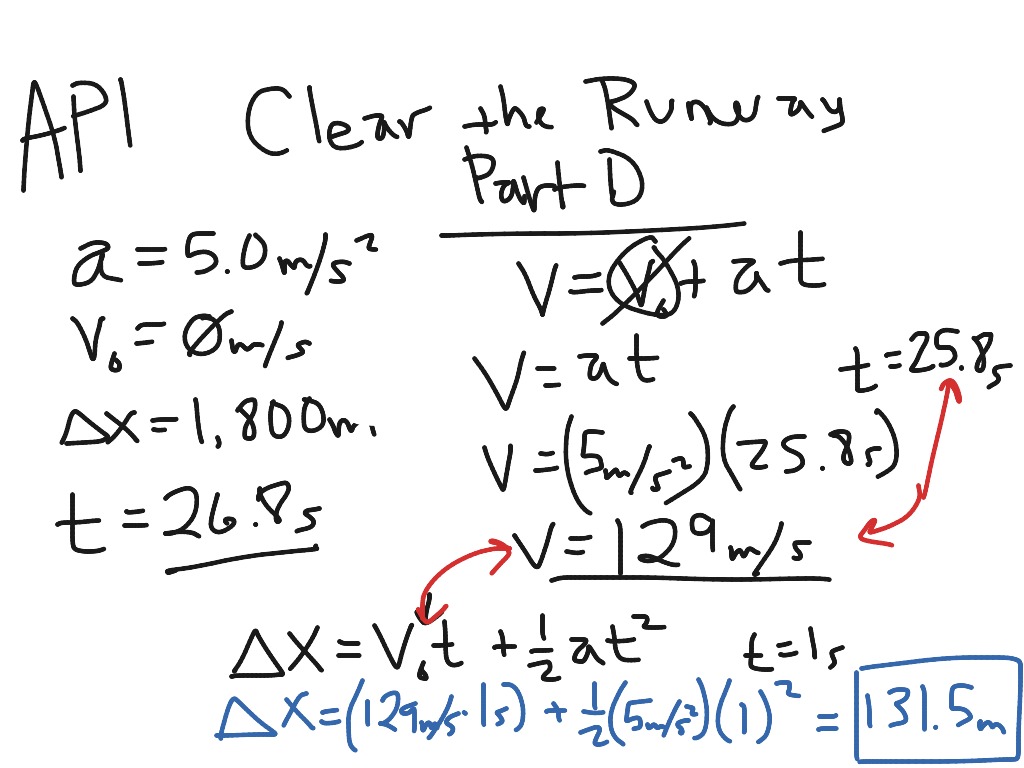 AP1 Clear the Runway
Part D
a = 5.0 m/s²
V₀ = 0 m/s
Δx = 1,800 m.
t = 26.8 s
V = V₀ + at
V = at
t = 25.8 s
V = (5 m/s²)(25.8 s)
V = 129 m/s
Δx = V₀t + ½at² t = 1s
Δx = (129 m/s · 1s) + ½(5 m/s²)(1)² = 131.5 m